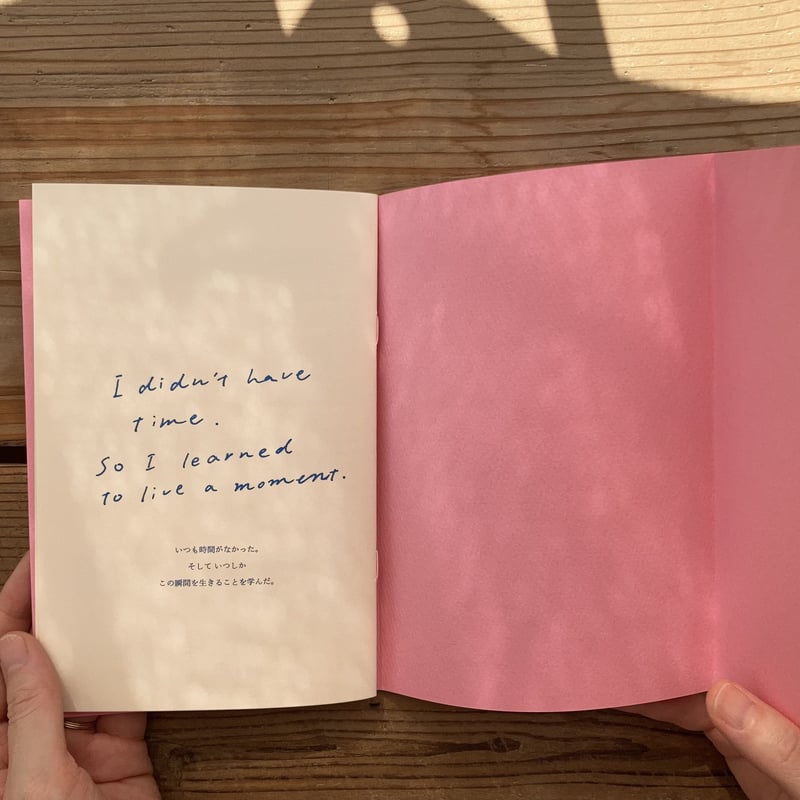 I didn't have
time.
So I learned
to live a moment.
いつも時間がなかった。
そして いつしか
この瞬間を生きることを学んだ。